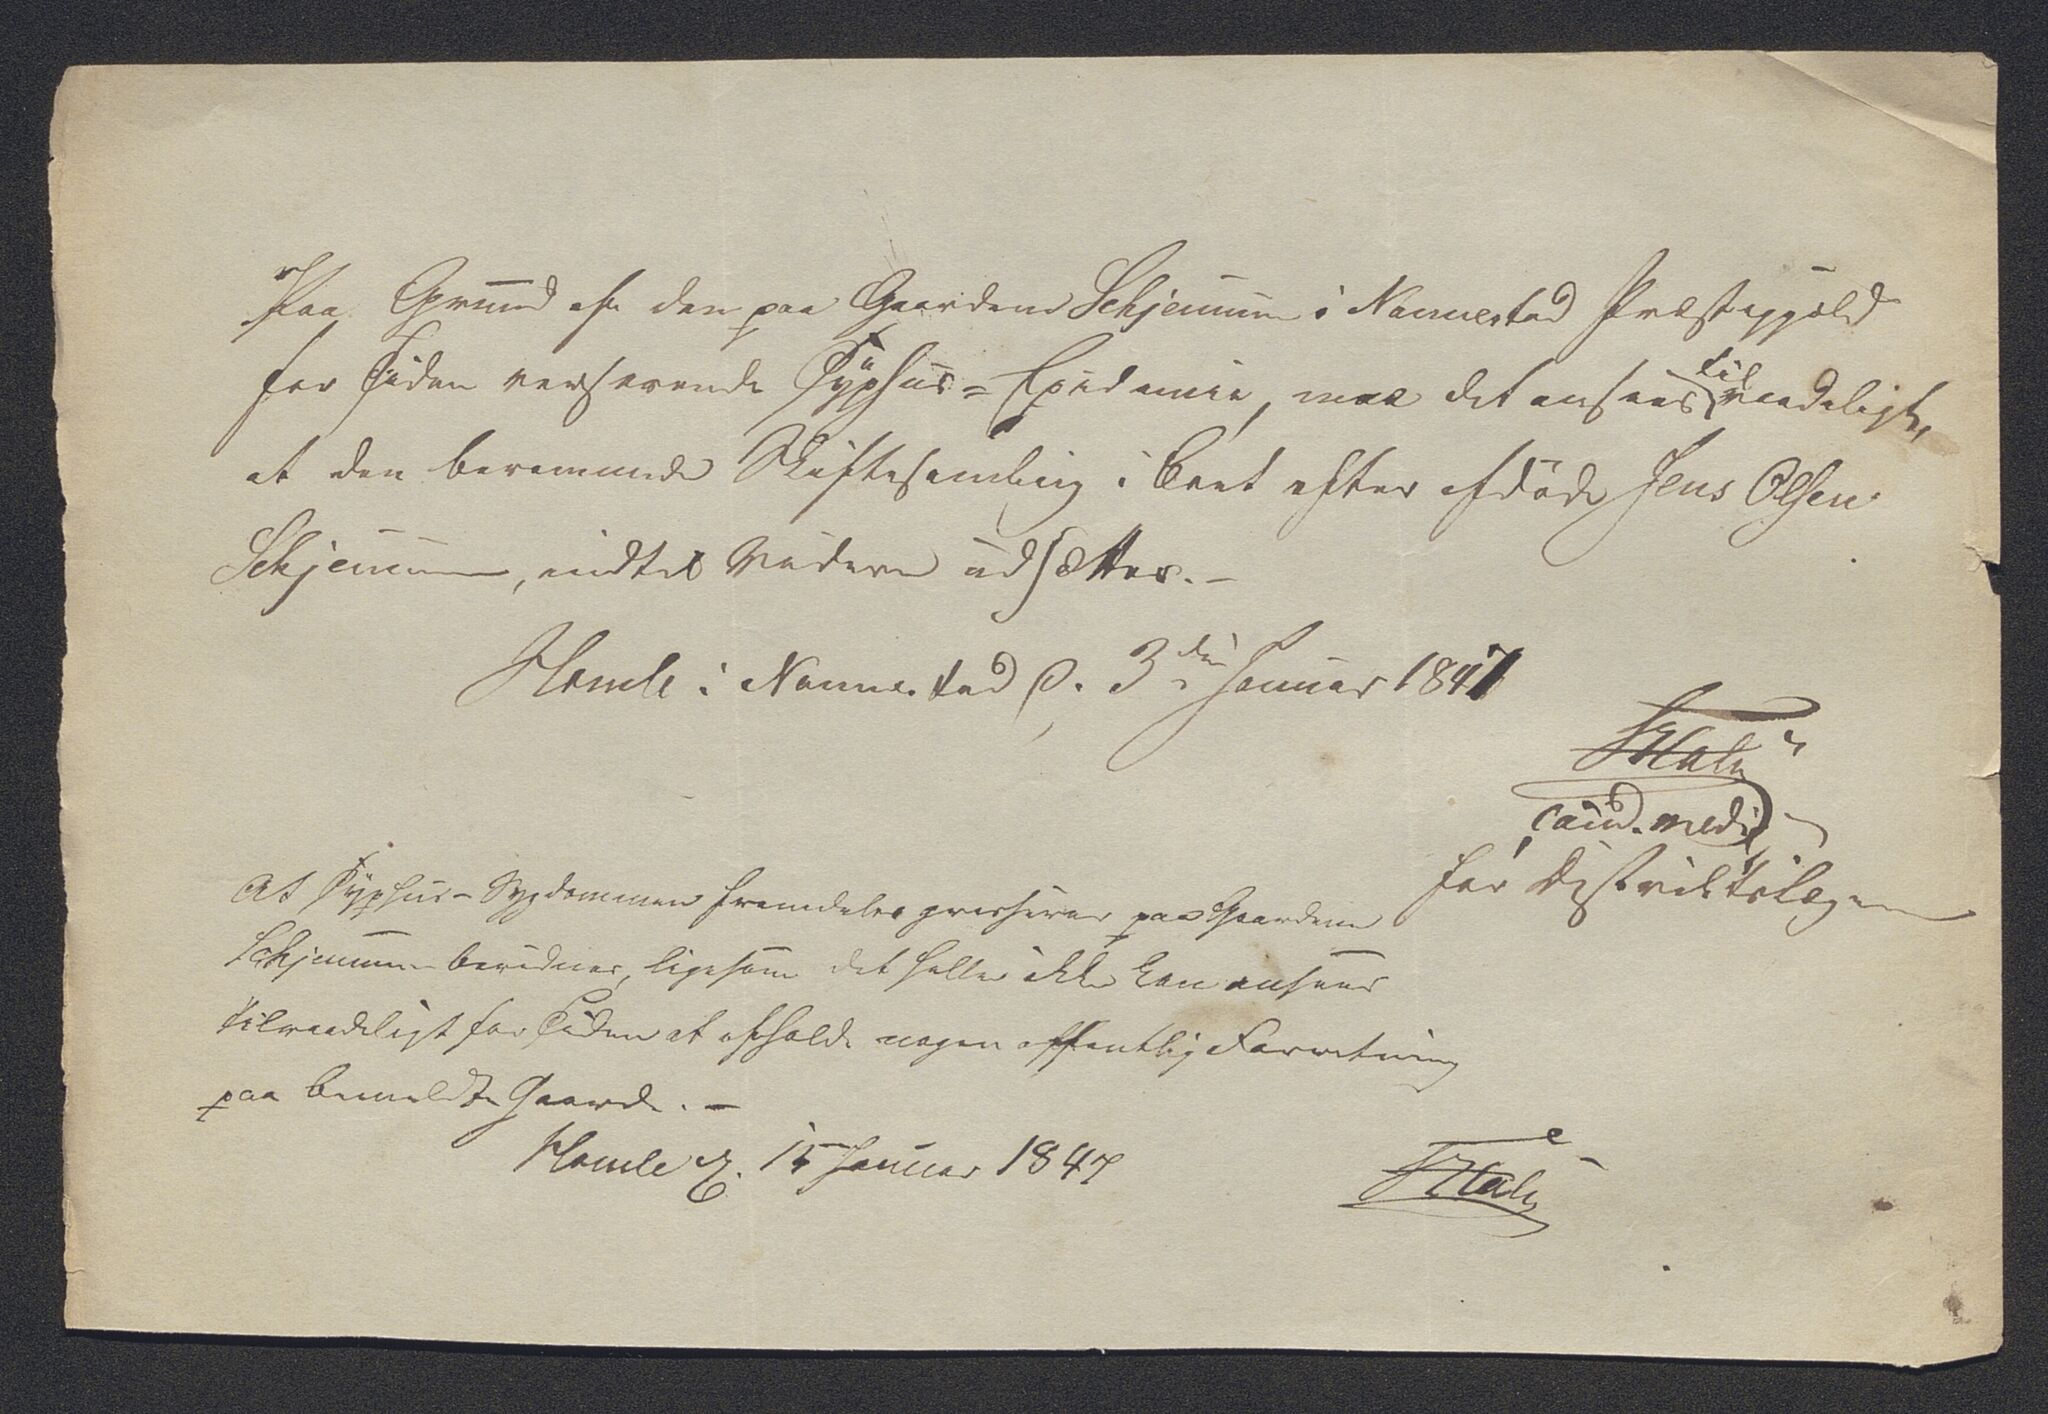 Paa Grund af den paa Gaarden Schjennum i Nannestad Præstegjæld
for Tiden verserende Typhus-Epidemie, maa det ansees tilraadeligt,
at den berammede Skiftesamling i Boet efter afdøde Jens Olsen
Schjennum, indtil Videre udsættes. -
Homle i Nannestad d. 3die Januar 1847
Hals
cand. med.
for Distriktslægen
At Typhus-Sygdommen fremdeles grasserer paa Gaarden
Schjennum bevidnes, ligesom det heller ikke kan ansees
tilraadeligt for Tiden at afholde nogen offentlig Forretning
paa bemeldte Gaard. -
Homle 15 Januar 1847
Hals